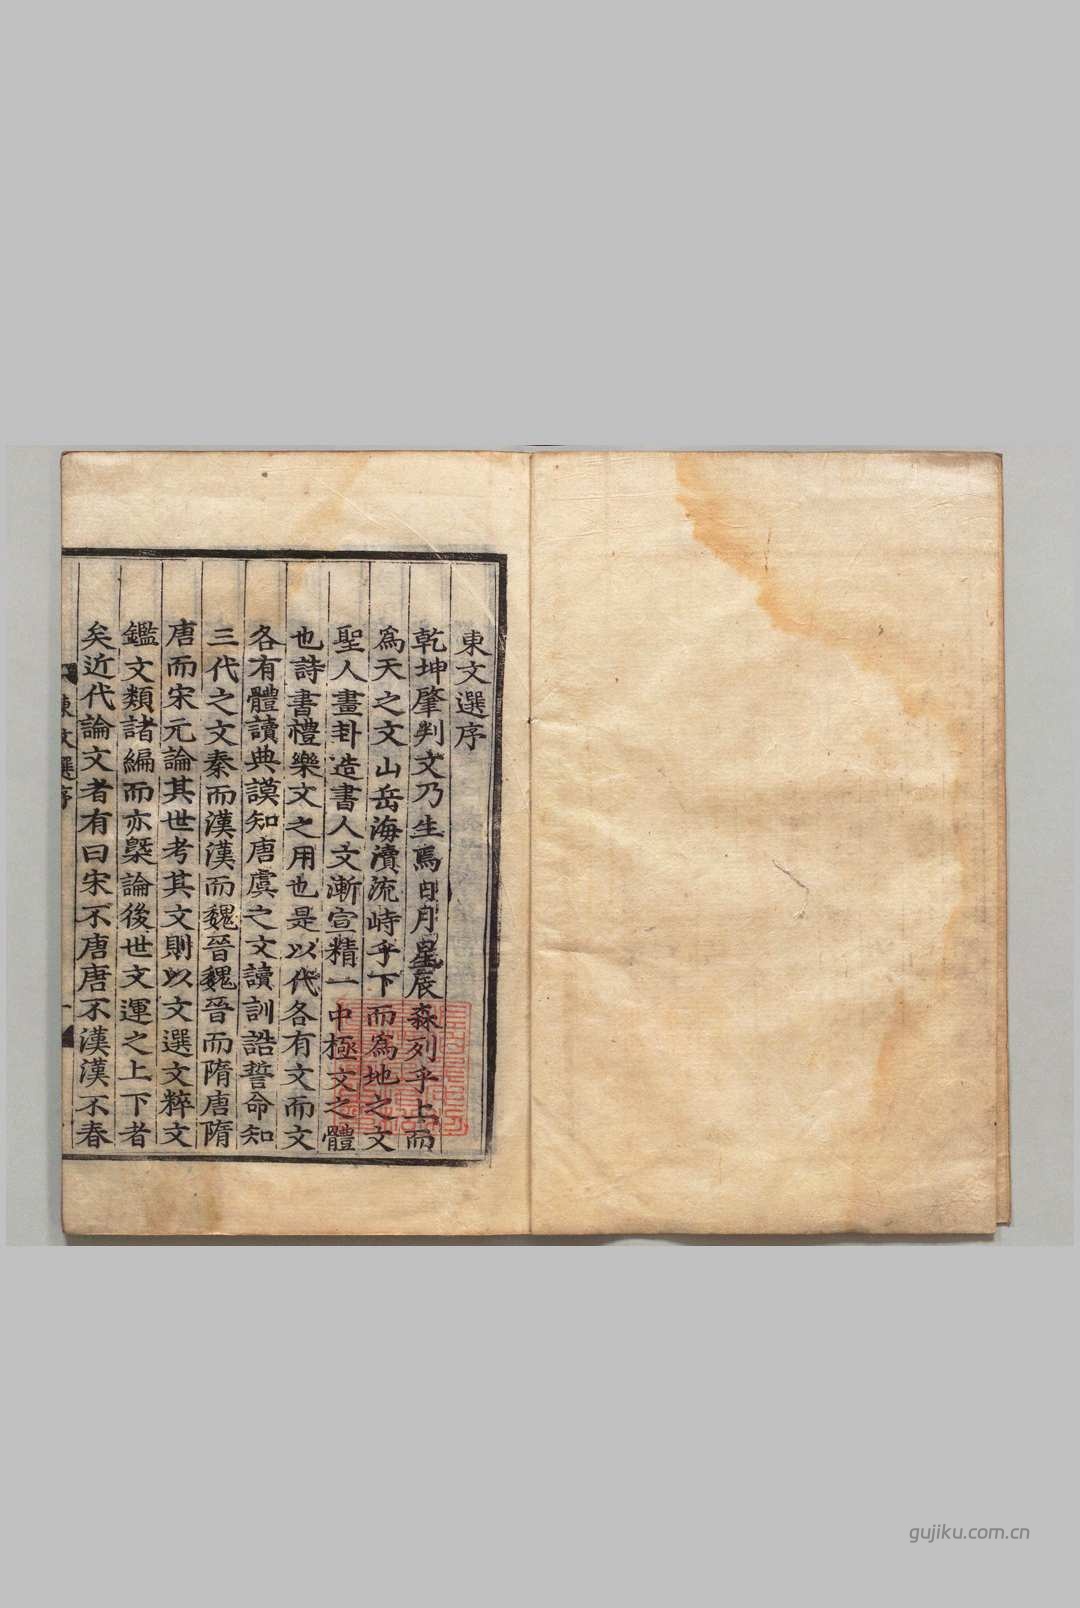 東文選序
乾坤肇判文乃生焉日月星辰森列乎上而
爲天之文山岳海瀆流峙乎下而爲地之文
聖人畫卦造書人文漸宣精一中極文之體
也詩書禮樂文之用也是以代各有文而文
各有體讀典謨知唐虞之文讀訓誥誓命知
三代之文秦而漢漢而魏晉魏晉而隋唐隋
唐而宋元論其世考其文則以文選文粹文
鑑文類諸編而亦槩論後世文運之上下者
矣近代論文者有曰宋不唐唐不漢漢不春
東文選序
gujiku.com.cn